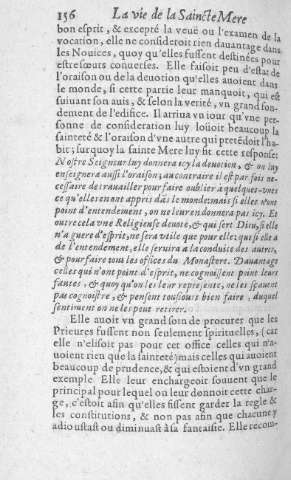 156 La vie de la Saincte Mere
bon esprit, & excepté la veuë ou l'examen de la
vocation, elle ne consideroit rien dauantage dans
les Nouices, quoy qu'elles fussent destinées pour
estre sœurs conuerses. Elle faisoit peu d'estat de
l'oraison ou de la deuotion qu'elles auoient dans
le monde, si cette partie leur manquoit, qui est
suiuant son auis, & selon la verité, vn grand fon-
dement de l'edifice. Il arriua vn iour qu'vne per-
sonne de consideration luy loüoit beaucoup la
sainteté & l'oraison d'vne autre qui pretédoit l'ha-
bit; sur quoy la sainte Mere luy fit cette response:
Nostre Seigneur luy donnera icy la deuotion, & on luy
enseignera aussi l'oraison; au contraire il est par fois ne-
cessaire de trauailler pour faire oublier à quelques-vnes
ce qu'elles en ont appris dãs le monde: mais si elles n'ont
point d'entendement, on ne leur en donnera pas icy. Et
outre cela vne Religieuse deuote, & qui sert Dieu, si elle
n'a guere d'esprit, ne sera vtile que pour elle; qui si elle a
de l'entendement, elle seruira à la conduite des autres,
& pour faire tous les offices du Monastere. Dauantage
celles qui n'ont point d'esprit, ne cognoissent point leurs
fautes, & quoy qu'on les leur represente, ne les sçauent
pas cognoistre, & pensent tousiours bien faire, duquel
sentiment on ne les peut retirer.
Elle auoit vn grand soin de procurer que les
Prieures fussent non seulement spirituelles, (car
elle n'elisoit pas pour cet office celles qui n'a-
uoient rien que la sainteté) mais celles qui auoient
beaucoup de prudence, & qui estoient d'vn grand
exemple Elle leur enchargeoit souuent que le
principal pour lequel on leur donnoit cette char-
ge, c'estoit afin qu'elles fissent garder la regle &
les constitutions, & non pas afin que chacune y
adioustast ou diminuast à sa fantaisie. Elle recom-